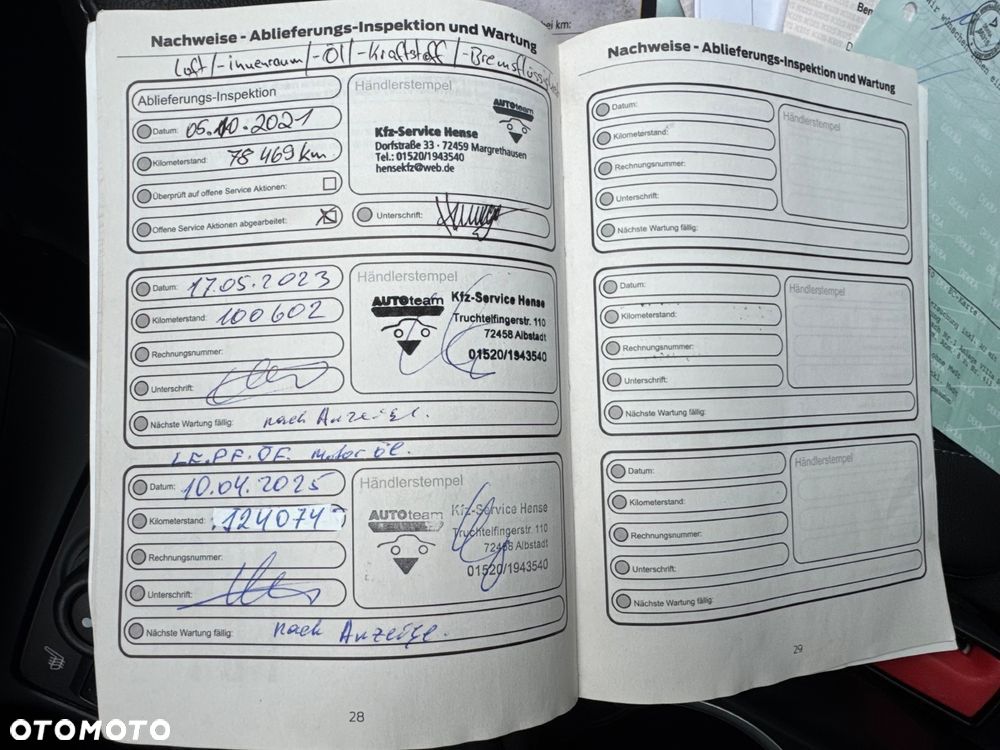 Nachweise - Ablieferungs-Inspektion und Wartung
Luft/-innenraum/-Öl/-Kraftstoff/-Bremsflüssigkeit
Ablieferungs-Inspektion
Datum: 05.10.2021
Kilometerstand: 78 469 km
Überprüft auf offene Service Aktionen:
Offene Service Aktionen abgearbeitet:
Händlerstempel
AUTOteam
Kfz-Service Hense
Dorfstraße 33 · 72459 Margrethausen
Tel.: 01520/1943540
hensekfz@web.de
Unterschrift:
Datum: 17.05.2023
Kilometerstand: 100602
Rechnungsnummer:
Unterschrift:
Nächste Wartung fällig: nach Anzeige.
Händlerstempel
AUTOteam
Kfz-Service Hense
Truchtelfingerstr. 110
72458 Albstadt
01520/1943540
LF. PF. ÖF. Motoröl.
Datum: 10.04.2025
Kilometerstand: 124074
Rechnungsnummer:
Unterschrift:
Nächste Wartung fällig: nach Anzeige.
Händlerstempel
AUTOteam
Kfz-Service Hense
Truchtelfingerstr. 110
72458 Albstadt
01520/1943540
28
Nachweise - Ablieferungs-Inspektion und Wartung
Datum:
Kilometerstand:
Rechnungsnummer:
Unterschrift:
Nächste Wartung fällig:
Händlerstempel
Datum:
Kilometerstand:
Rechnungsnummer:
Unterschrift:
Nächste Wartung fällig:
Händlerstempel
Datum:
Kilometerstand:
Rechnungsnummer:
Unterschrift:
Nächste Wartung fällig:
Händlerstempel
29
bei km:
DEKRA
EC-Karte
OTOMOTO